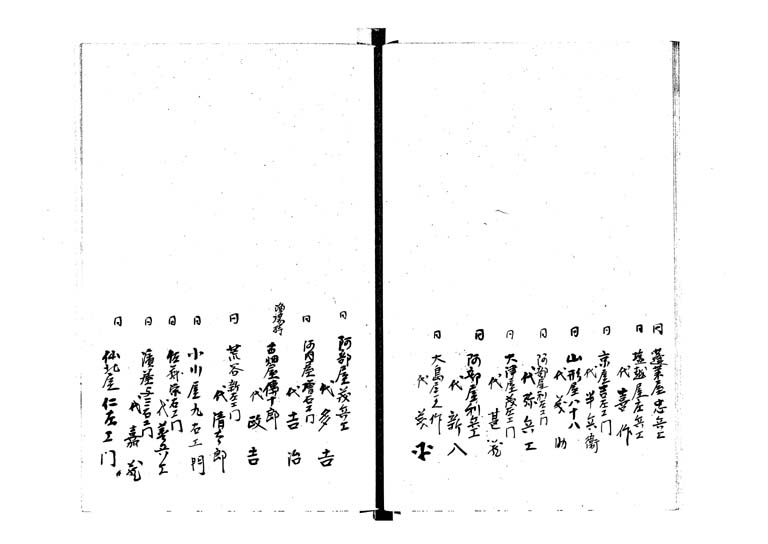 同 蓬莱屋忠兵エ
同 塩越屋庄兵エ
代 喜作
同 京屋吉左エ門
代 半兵衛
同 山形屋八十八
代 助
同 阿部屋利左エ门
代 弥兵エ
同 大津屋茂左エ门
代 甚
同 阿部屋利兵エ
代 新八
同 大島屋 作
代
同 阿部屋茂兵エ
代 多吉
同 河内屋増右エ门
代 吉治
古畑屋傳十郎
代 政吉
同 荒谷新左エ门
代 清太郎
同 小川屋九右エ門
同 佐 栄右エ门
代 善兵エ
同 濱 与三右エ门
代 嘉
同 仙北屋仁左エ门